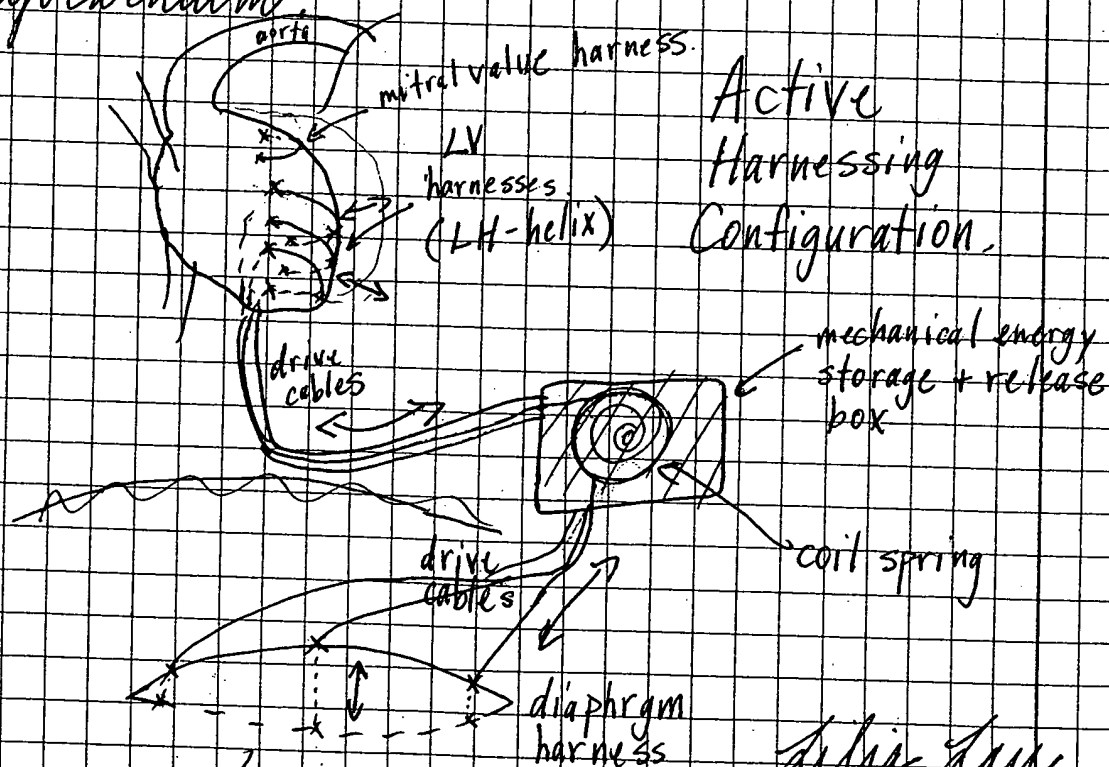 aorta
mitral value harness.
LV
harnesses
(LH-helix)
Active
Harnessing
Configuration.
drive
cables
mechanical energy
storage + release
box
coil spring
drive
cables
diaphrgm
harness